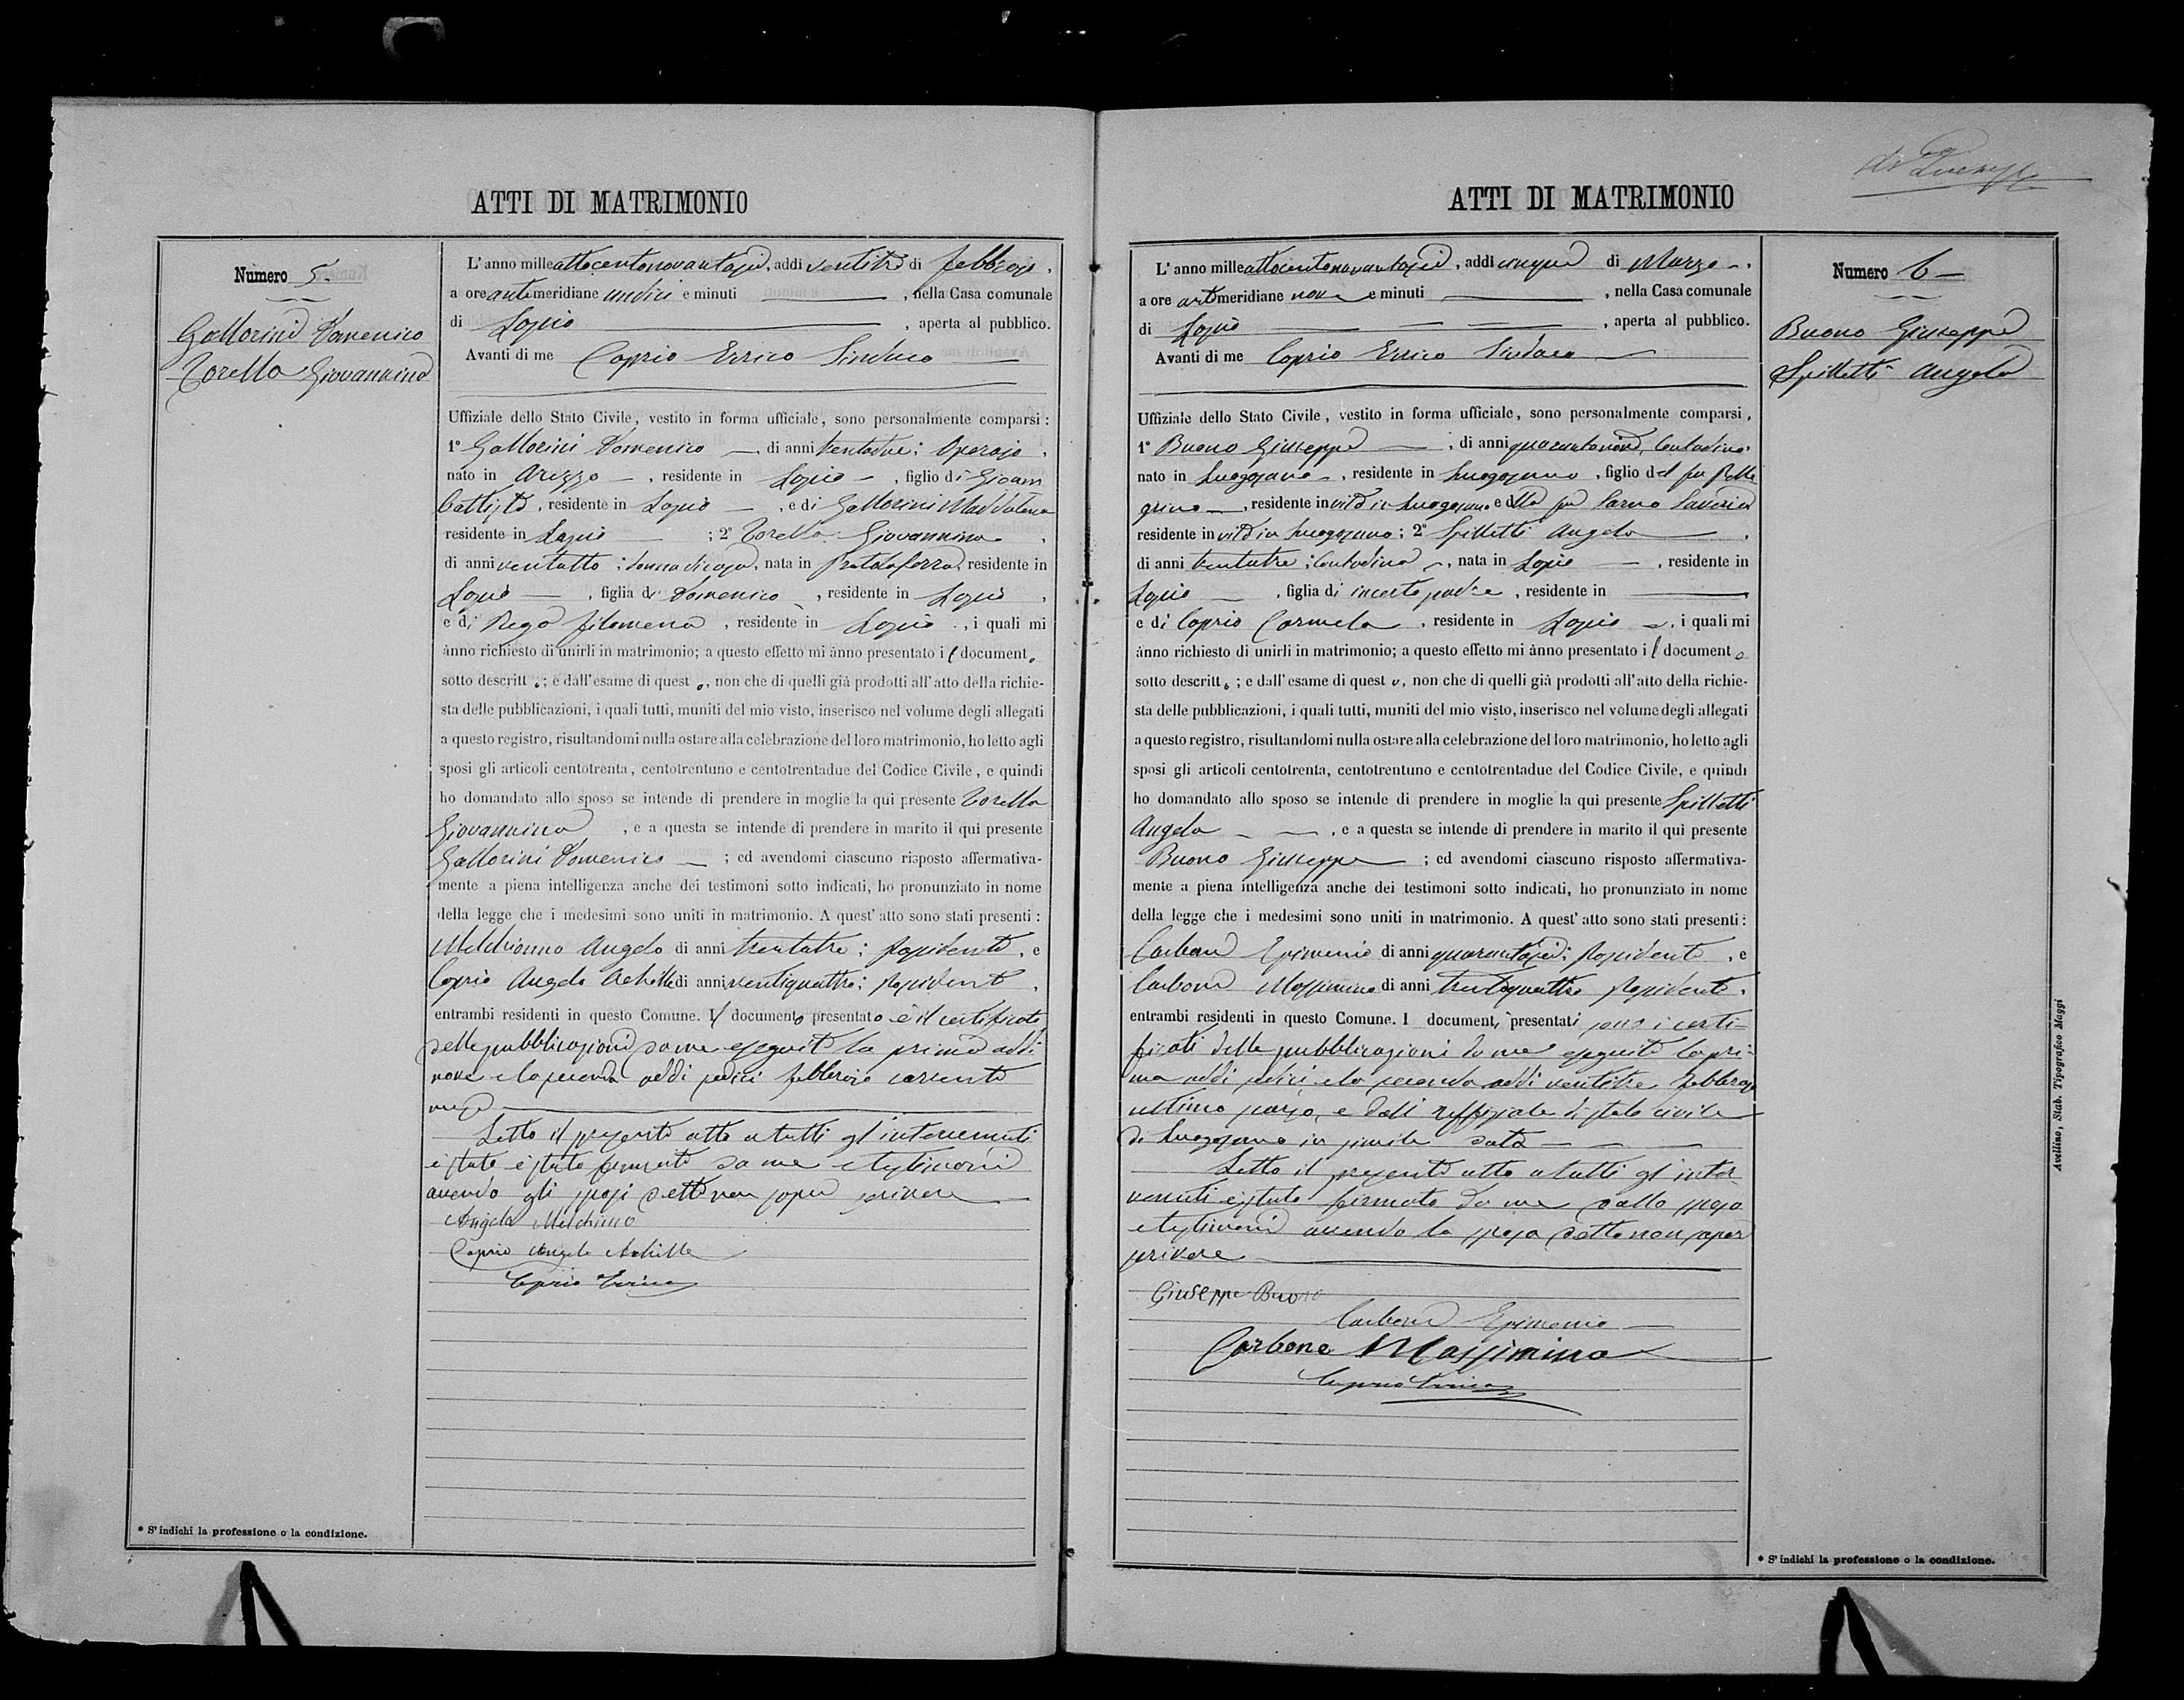 ATTI DI MATRIMONIO
Numero 5.
Gallorini Domenico
Torella Giovannina
L'anno milleottocentonovantasei, addì ventitre di febbraio,
a ore antimeridiane undici e minuti , nella Casa comunale
di Lapio , aperta al pubblico.
Avanti di me Caprio Errico Sindaco
Uffiziale dello Stato Civile, vestito in forma ufficiale, sono personalmente comparsi:
1° Gallorini Domenico , di anni trentadue; Operajo,
nato in Arezzo , residente in Lapio , figlio di Giovan
Battista, residente in Lapio , e di Gallorini Maddalena
residente in Lapio ; 2° Torella Giovannina ,
di anni ventotto ; donna di casa, nata in Pratolaserra, residente in
Lapio , figlia di Domenico , residente in Lapio ,
e di Rega Filomena , residente in Lapio , i quali mi
ànno richiesto di unirli in matrimonio; a questo effetto mi ànno presentato il documento
sotto descritto; e dall'esame di questo, non che di quelli già prodotti all'atto della richie-
sta delle pubblicazioni, i quali tutti, muniti del mio visto, inserisco nel volume degli allegati
a questo registro, risultandomi nulla ostare alla celebrazione del loro matrimonio, ho letto agli
sposi gli articoli centotrenta, centotrentuno e centotrentadue del Codice Civile, e quindi
ho domandato allo sposo se intende di prendere in moglie la qui presente Torella
Giovannina , e a questa se intende di prendere in marito il qui presente
Gallorini Domenico ; ed avendomi ciascuno risposto affermativa-
mente a piena intelligenza anche dei testimoni sotto indicati, ho pronunziato in nome
della legge che i medesimi sono uniti in matrimonio. A quest'atto sono stati presenti:
Melchionno Angelo di anni trentatre; Possidente, e
Caprio Angelo Achille di anni ventiquattro; Possidente,
entrambi residenti in questo Comune. Il documento presentato è il certificato
delle pubblicazioni da me eseguite la prima addì
nove e la seconda addì sedici febbraio corrente
mese
Letto il presente atto a tutti gl'intervenuti
è stato è stato firmato da me e testimoni
avendo gli sposi detto non saper scrivere
Angelo Melchionno
Caprio Angelo Achille
Caprio Errico
* S'indichi la professione o la condizione.
ATTI DI MATRIMONIO
Numero 6
Buono Giuseppe
Spilletti Angela
L'anno milleottocentonovantasei, addì cinque di Marzo ,
a ore antimeridiane nove e minuti , nella Casa comunale
di Lapio , aperta al pubblico.
Avanti di me Caprio Errico Sindaco
Uffiziale dello Stato Civile, vestito in forma ufficiale, sono personalmente comparsi,
1° Buono Giuseppe , di anni quarantanove, Contadino,
nato in Luogosano , residente in Luogosano , figlio del fu Pelle
grino , residente in vita in Luogosano e della fu Sarno Saveria
residente in vita in Luogosano; 2° Spilletti Angela ,
di anni trentatre; Contadina , nata in Lapio , residente in
Lapio , figlia di incerto padre , residente in
e di Caprio Carmela , residente in Lapio , i quali mi
ànno richiesto di unirli in matrimonio; a questo effetto mi ànno presentato il documento
sotto descritto; e dall'esame di questo, non che di quelli già prodotti all'atto della richie-
sta delle pubblicazioni, i quali tutti, muniti del mio visto, inserisco nel volume degli allegati
a questo registro, risultandomi nulla ostare alla celebrazione del loro matrimonio, ho letto agli
sposi gli articoli centotrenta, centotrentuno e centotrentadue del Codice Civile, e quindi
ho domandato allo sposo se intende di prendere in moglie la qui presente Spilletti
Angela , e a questa se intende di prendere in marito il qui presente
Buono Giuseppe ; ed avendomi ciascuno risposto affermativa-
mente a piena intelligenza anche dei testimoni sotto indicati, ho pronunziato in nome
della legge che i medesimi sono uniti in matrimonio. A quest'atto sono stati presenti:
Carbone Epimenio di anni quarantasei; Possidente, e
Carbone Massimino di anni trentaquattro Possidente,
entrambi residenti in questo Comune. I documenti presentati sono i certi-
ficati delle pubblicazioni da me eseguite la pri-
ma addì sedici e la seconda addì ventitre febbraio
ultimo scorso, e dall'uffiziale di stato civile
di Luogosano in simile data
Letto il presente atto a tutti gl'inter-
venuti è stato firmato da me dallo sposo
e testimoni avendo la sposa detto non saper
scrivere
Giuseppe Buono
Carbone Epimenio
Carbone Massimino
Caprio Errico
* S'indichi la professione o la condizione.
Avellino, Stab. Tipografico Maggi